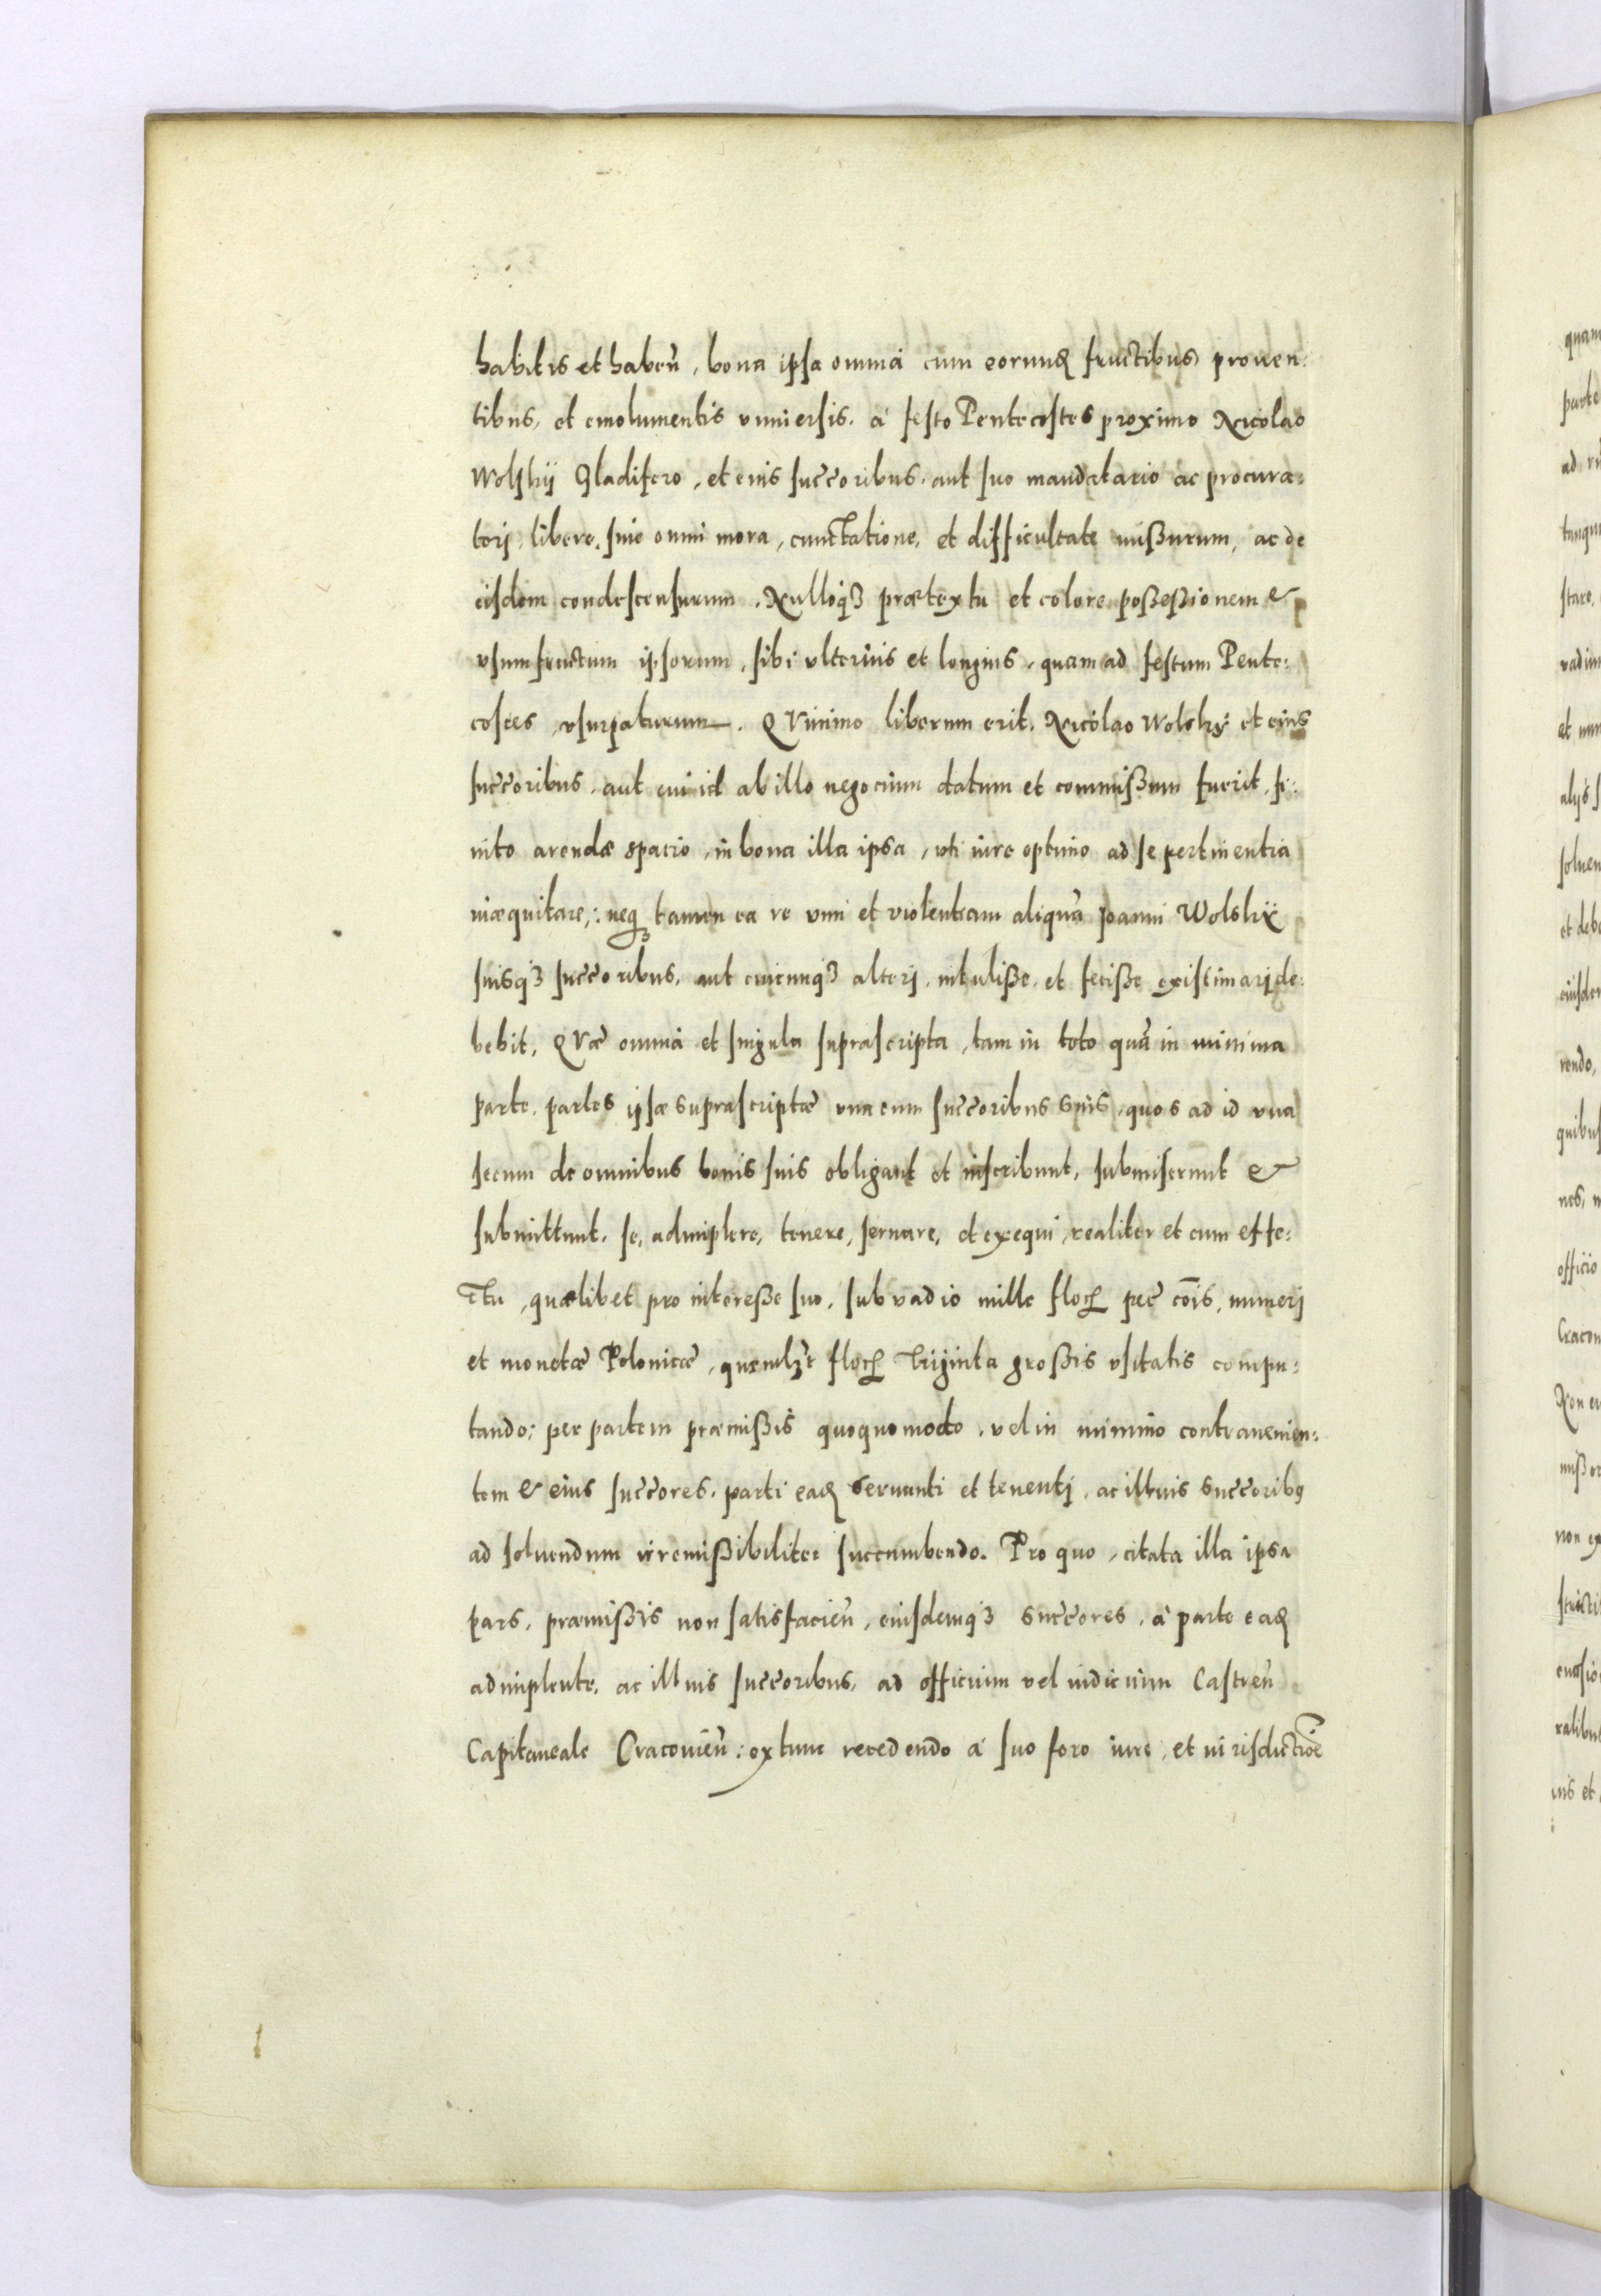 habitis et habeñ, bona ipsa omnia cum eorund fructibus, prouen:
tibus, et emolumentis vniuersis. à festo Pentecostes proximo Nicolao
Wolskij Gladifero, et eius succ̃oribus. aut suo mandatario ac procura:
torj, libere, sine omni mora, cunctatione, et difficultate mißurum, ac de
eisdem condescensurum. Nulloq3 prætextu et colore poßeßionem &
vsumfructum ipsorum, sibi vlterius et longius, quam ad festum Pente:
costes, vsurpaturum. QVinimo liberum erit. Nicolao Wolskij et eius
succ̃oribus. aut cui id ab illo negocium datum et commißum fuerit, fi:
nito arendæ spacio, in bona illa ipsa, vti iure optimo ad se pertinentia
inæquitare,: neq3 tamen ea re vim et violentiam aliquã Joanni Wolskij
suisq3 succ̃oribus, aut cuicunq3 alterj, intuliße, et feciße existimarj de:
bebit. QVæ omnia et singula suprascripta, tam in toto quã in minima
parte. partes ipsæ suprascriptæ vna cum succ̃oribus suis, quos ad id vna
secum de omnibus bonis suis obligant et inscribunt, submiserunt &
submittunt, se, adimplere, tenere, seruare, et exequi, realiter et cum effe:
ctu, quælibet pro intereße suo, sub vadio mille floꝝ pec̃ cõis, numerj
et monetæ Polonicæ, quemlz̃t floꝝ triginta großis vsitatis compu:
tando; per partem præmißis quoquomodo, vel in minimo contrauenien:
tem & eius succ̃ores, parti ead seruanti et tenentj, ac illius succ̃oribꝯ
ad soluendum irremißibiliter succumbendo. Pro quo, citata illa ipsa
pars, præmißis non satisfacieñ, eiusdemq3 succ̃ores, à parte ead
adimplente, ac illius succ̃oribus, ad officium vel iudicium Castreñ
Capitaneale Cracouieñ: extunc recedendo à suo foro iure, et iurisdictiõe